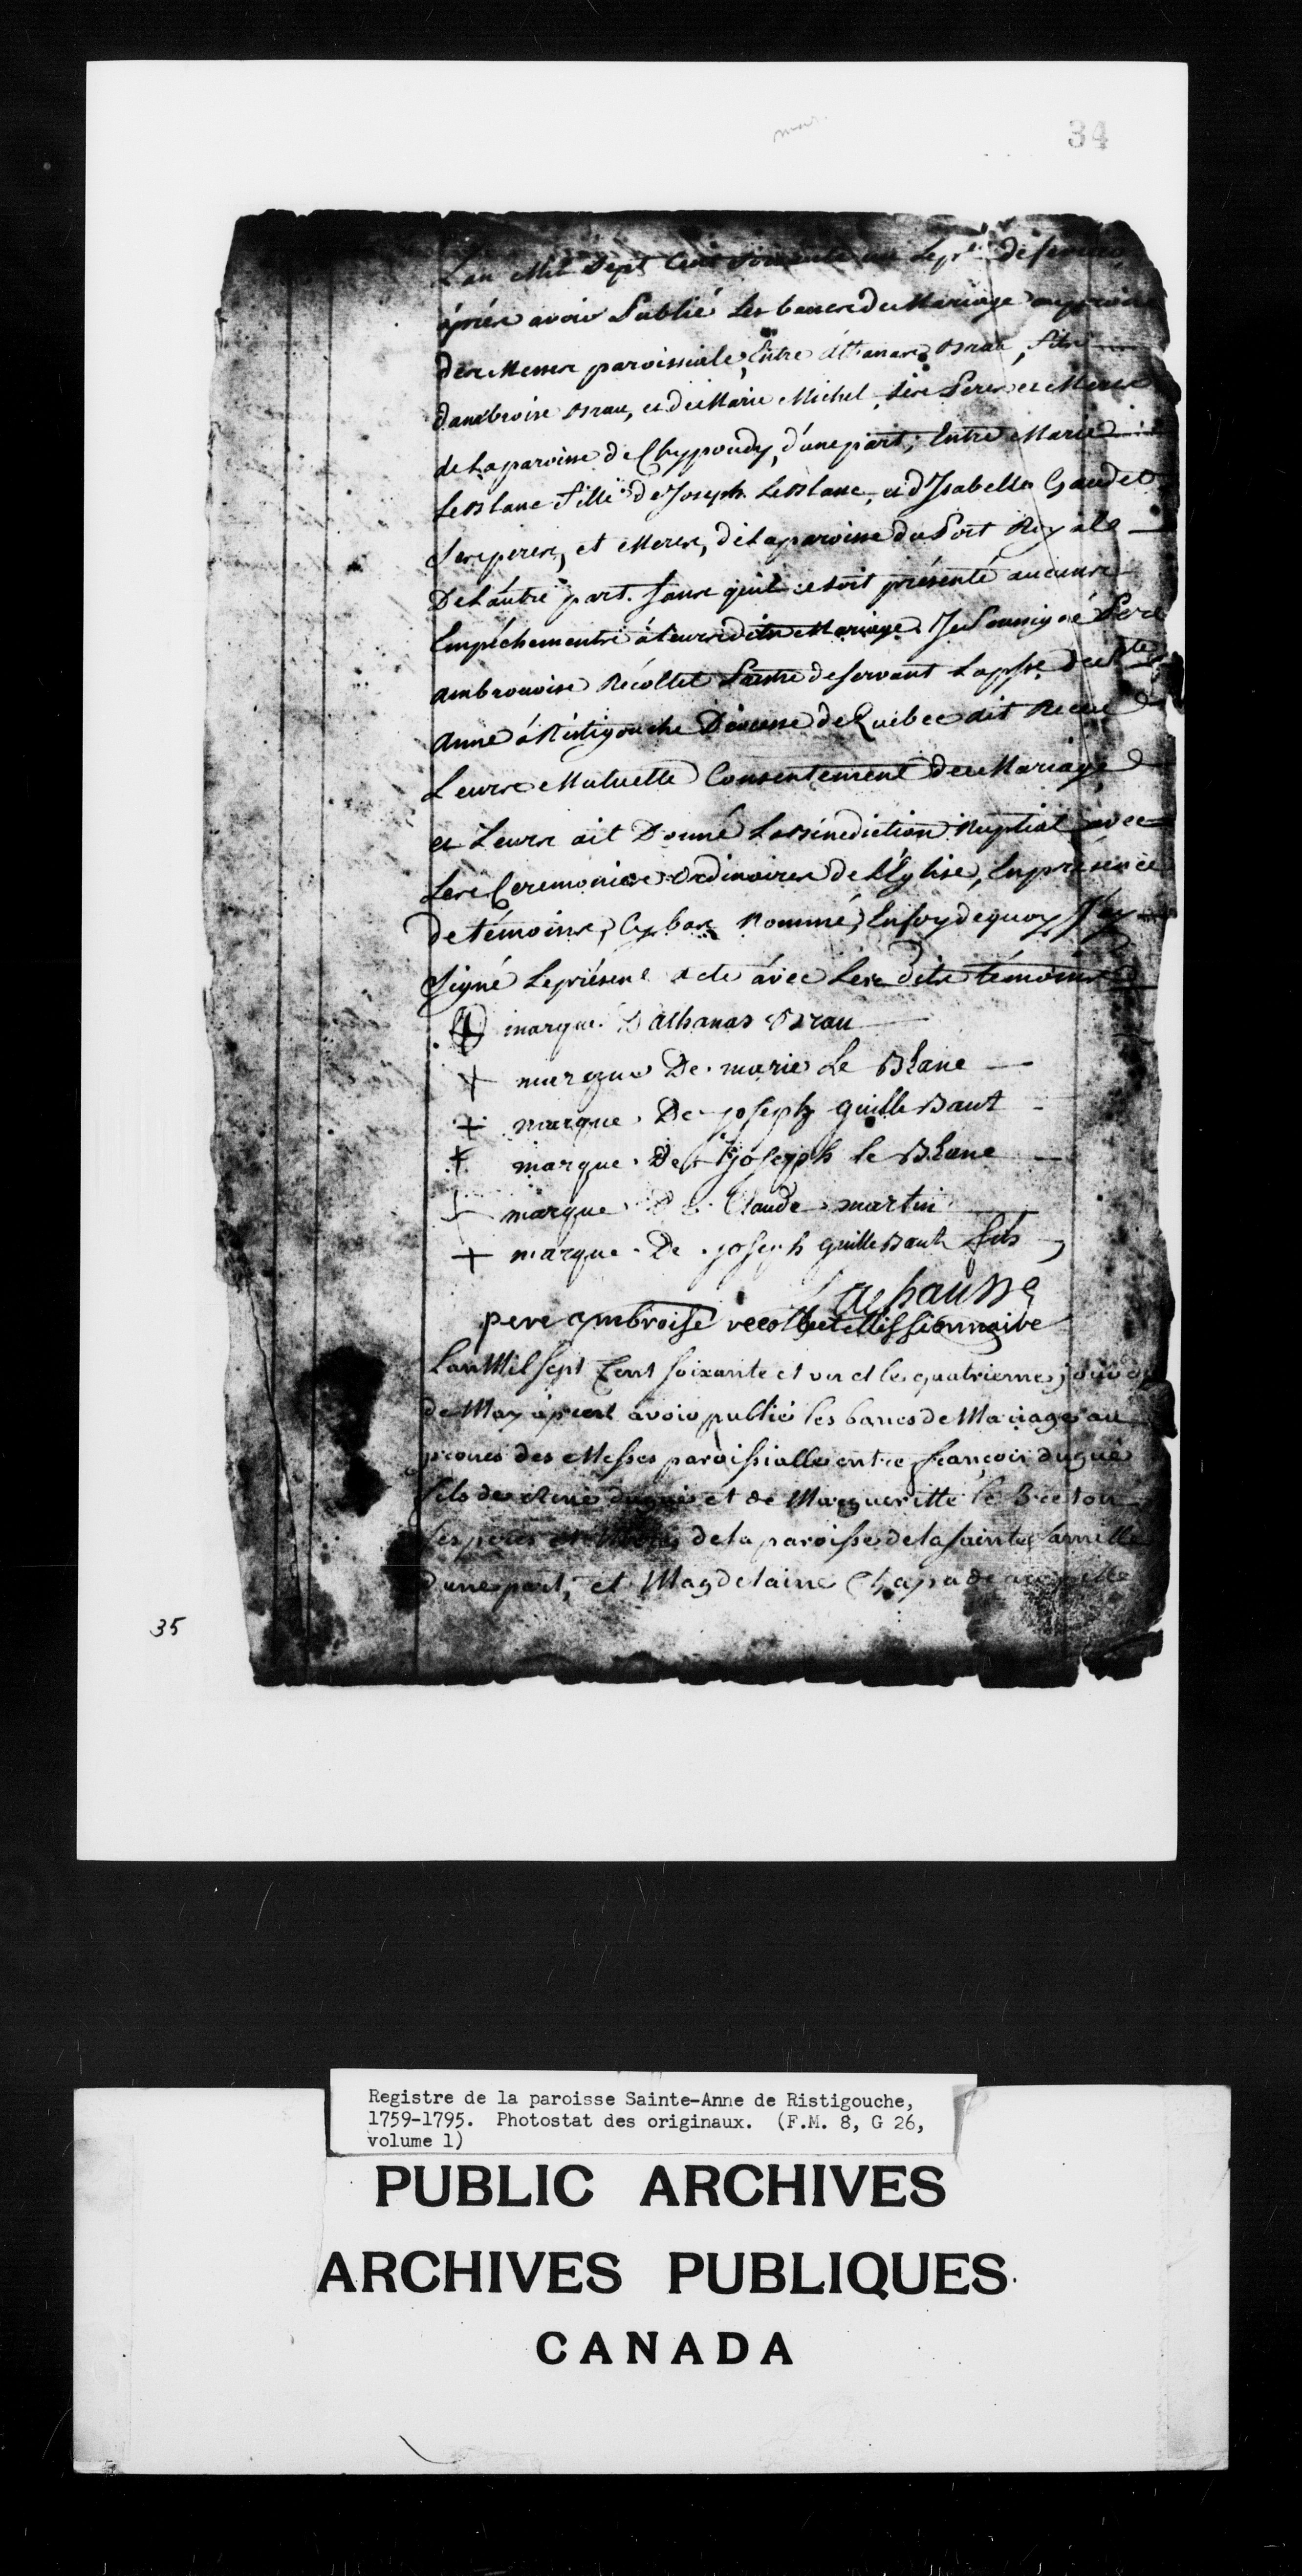 34
Lan Mil Sept Cent Soixante un Le de fevrier,
áprére avoir Publié Les bancs du Mariage au prone
des Messes paroissiale, Entre Athanare Brau, fils
dambroise Brau, et de Marie Michel, ses Peres et Meres
de La paroisse de Chypoudy, d'une part, Entre Marie
LeBlanc fille de Joseph LeBlanc, et d'Isabelle Gaudet
Ses peres, et Meres, de La paroisse du Port Royale
De Lautre part. Sans quil ce soit présenté aucuns
Empéchements à leurs dits Mariage Je Soussigné Pere
ambrouoise Récollet desservant La psse. de Ste
Anne à Ristigouche Diocesse de Quebec ait Recue
Leurs Mutuelle Consentement de Mariage
et Leurs ait Donné La Bénédiction Nuptial avec
Les Ceremonies Ordinaires de L'Eglise, En présence
de témoins, Cy bas Nommé, En foy de quoy J'ay
Signé Le présent Acte avec Les dits témoins
marque D athanas Brau
+ marque De marie Le Blanc
+ marque De joseph guille Baut
+ marque De joseph le Blanc
marque De Claude martin
+ marque De joseph guille Baut fils
Bachausse
pere ambroise recollect Missionnaire
Lan Mil sept Cent soixante et un et le quatrieme jour
de May áprest avoir publié les bancs de Mariage au
prones des Messes paroissialle entre françois dugué
fils de René dugué et de Margueritte le Breton
ses peres et Meres de la paroisse de la sainte famille
dune part, et Magdelaine Chapadeau fille
35
Registre de la paroisse Sainte-Anne de Ristigouche,
1759-1795. Photostat des originaux. (F.M. 8, G 26,
volume 1)
PUBLIC ARCHIVES
ARCHIVES PUBLIQUES
CANADA